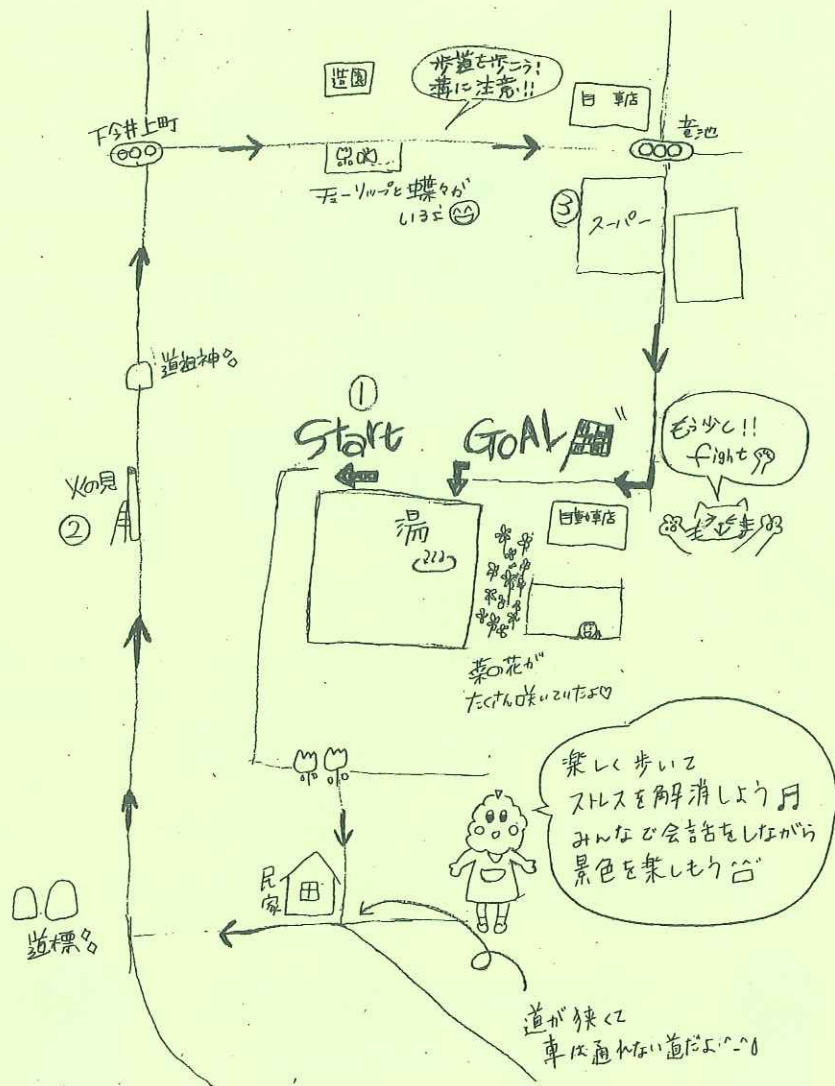 造園
歩道を歩こう!
溝に注意!!
自 車店
下今井上町
竜池
チューリップと蝶々が
いるよ
③
スーパー
道祖神
①
Start
GOAL
もう少し!!
fight
火の見
②
湯
自動車店
菜の花が
たくさん咲いていたよ♡
楽しく歩いて
ストレスを解消しよう♬
みんなで会話をしながら
景色を楽しもう
民家
道標
道が狭くて
車は通れない道だよ^-^